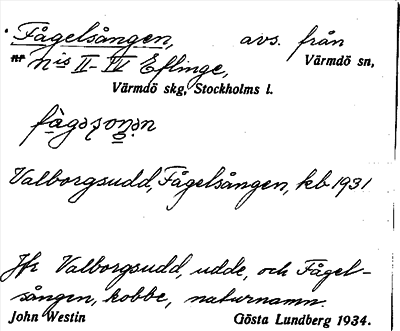 Fågelsången, avs. från
nr Nis II-IV Eflinge, Värmdö sn,
Värmdö skg, Stockholms l.
Valborgsudd, Fågelsången, kb 1931
Jfr Valborgsudd, udde, och Fågel-
sången, kobbe, naturnamn.
John Westin Gösta Lundberg 1934.